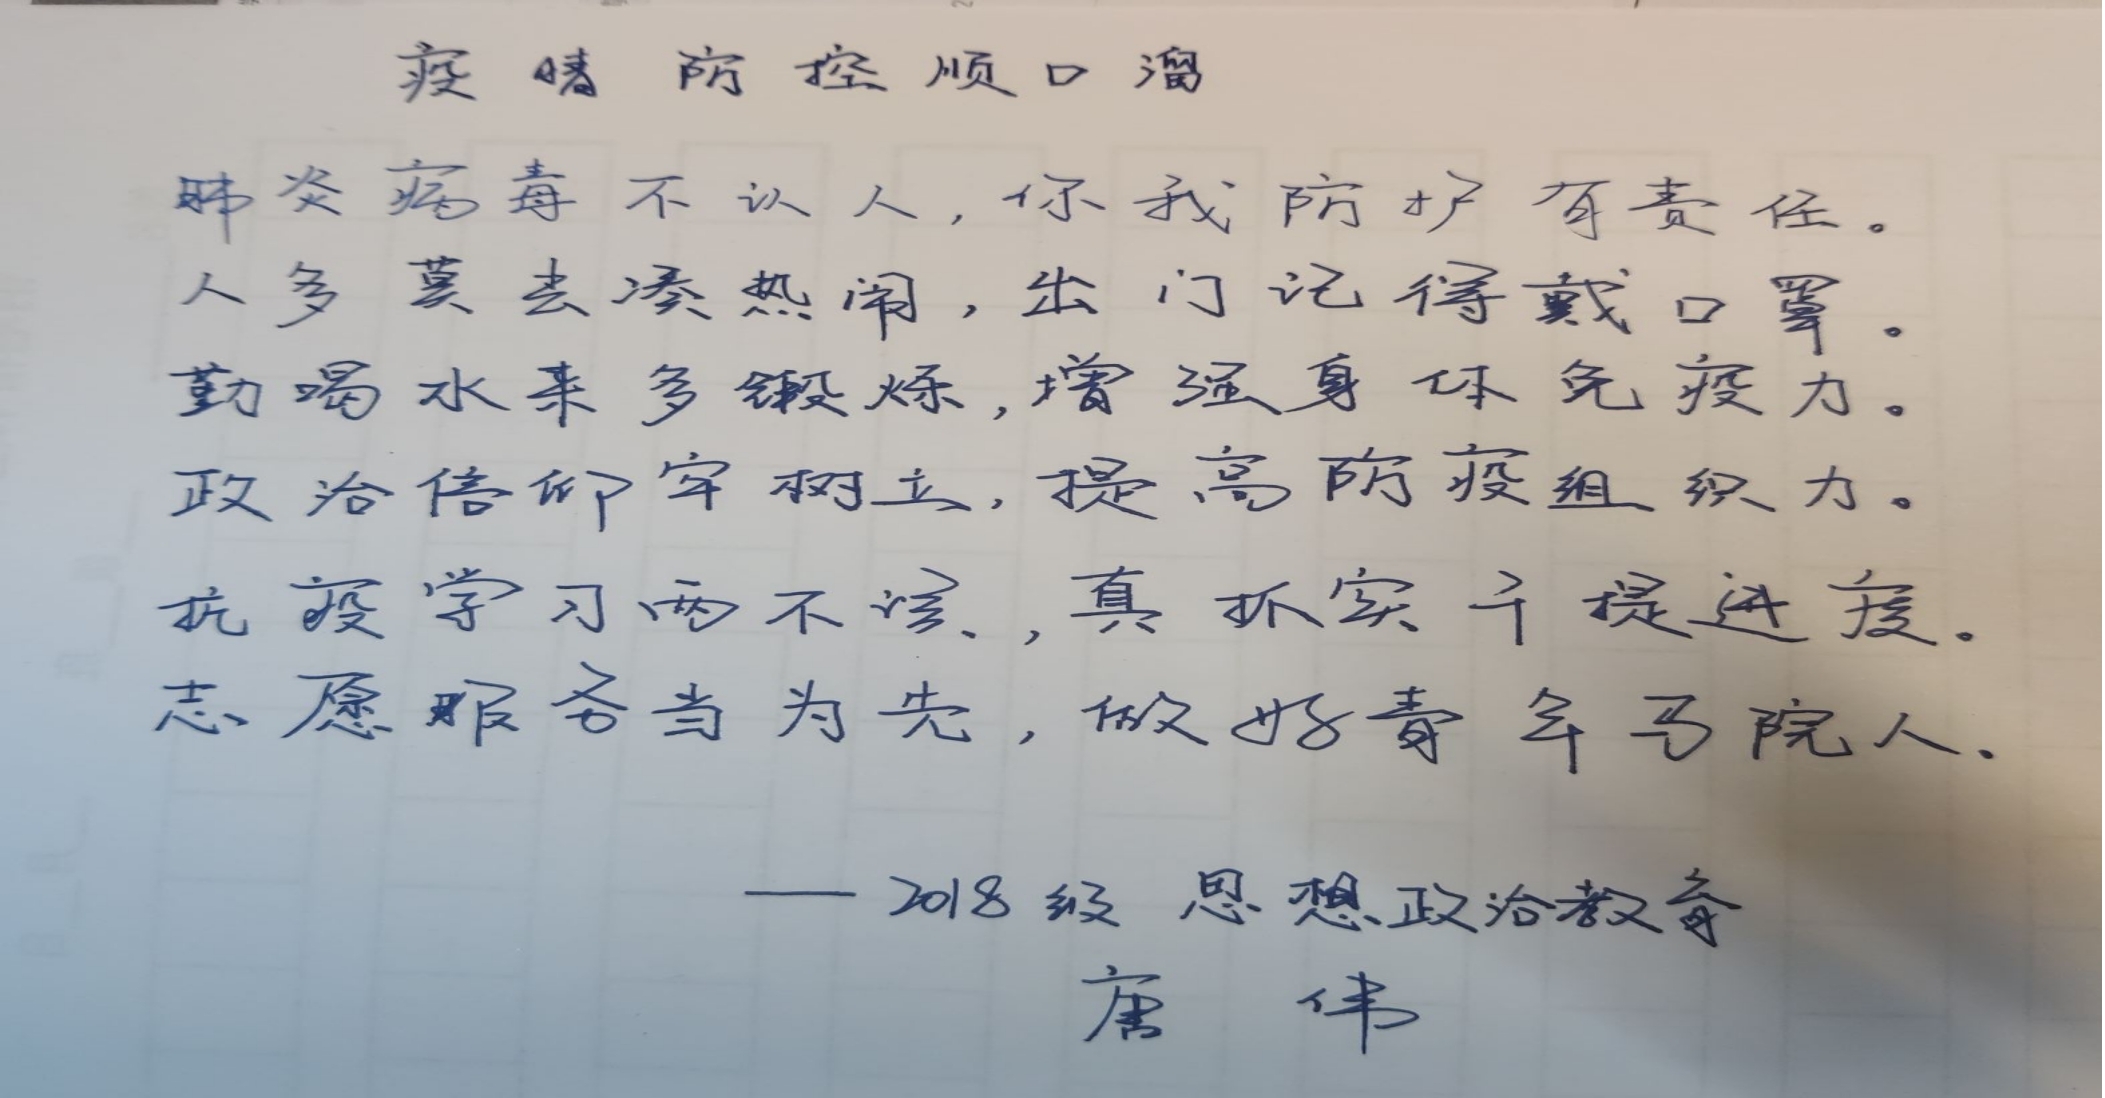 疫情防控顺口溜
肺炎病毒不认人，你我防护有责任。
人多莫去凑热闹，出门记得戴口罩。
勤喝水来多锻炼，增强身体免疫力。
政治信仰牢树立，提高防疫组织力。
抗疫学习两不误，真抓实干提进度。
志愿服务当为先，做好青年马院人.
——2018级 思想政治教育
唐 伟